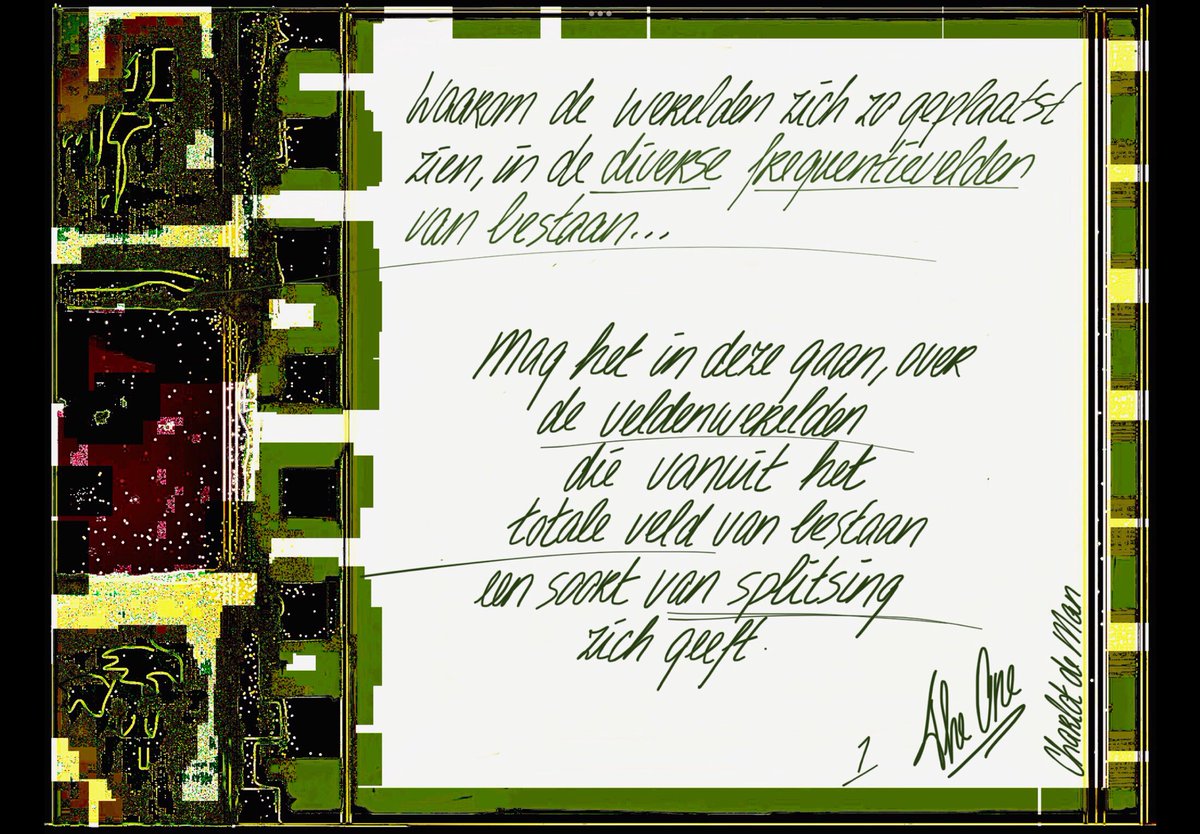 Waarom de werelden zich zo geplaatst
zien, in de diverse frequentievelden
van bestaan...
Mag het in deze gaan, over
de veldenwerelden
die vanuit het
totale veld van bestaan
een soort van splitsing
zich geeft.
1
The One
Charldt de Man